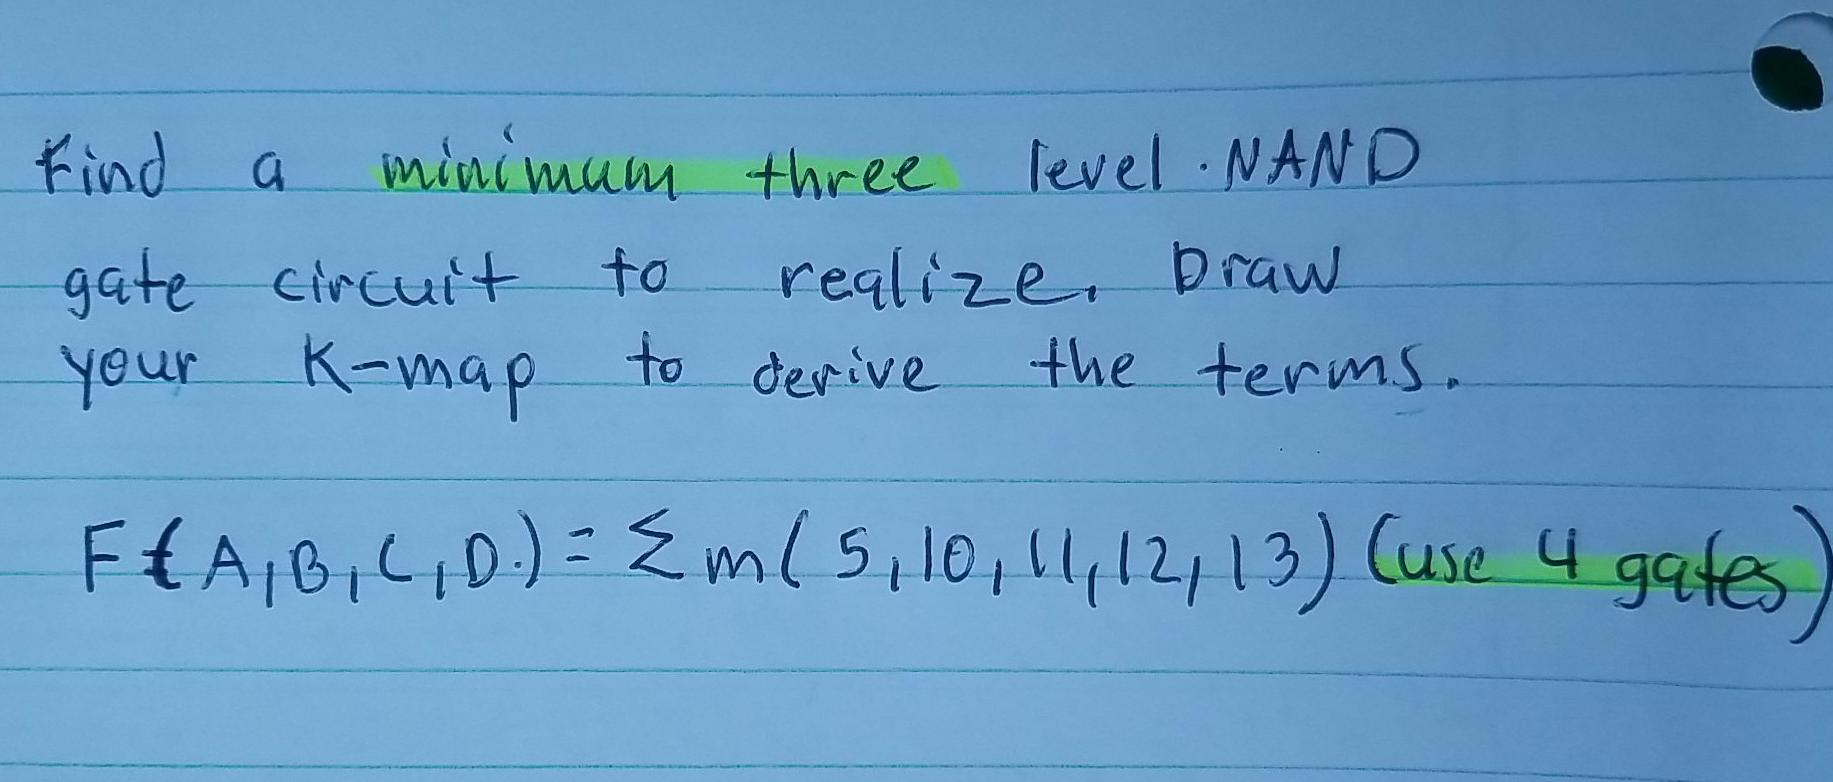 Find a minimum three level NAND
gate circuit to realize. Draw
your K-map to derive the terms.
F(A,B,C,D) = Σm(5,10,11,12,13) (use 4 gates)